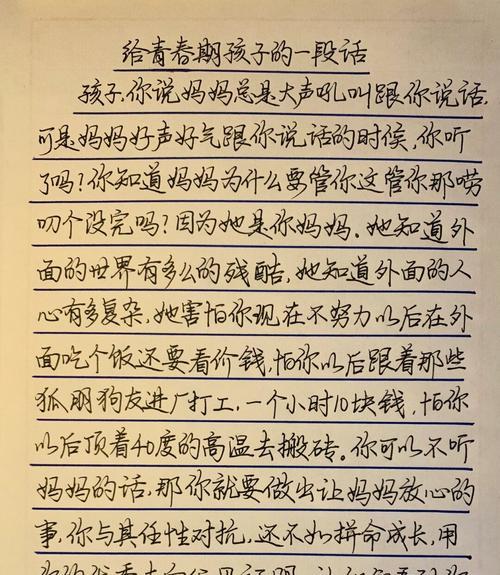 给青春期孩子的一段话
孩子,你说妈妈总是大声吼叫跟你说话,
可是妈妈好声好气跟你说话的时侯,你听
了吗?你知道妈妈为什么要管你这管你那唠
叨个没完吗?因为她是你妈妈.她知道外
面的世界有多么的残酷,她知道外面的人
心有多复杂,她害怕你现在不努力以后在外
面吃个饭还要看价钱,怕你以后跟着那些
狐朋狗友进厂打工,一个小时10块钱,怕你
以后顶着40度的高温去搬砖。你可以不听
妈妈的话,那你就要做出让妈妈放心的
事,你与其任性对抗,还不如拼命成长,用